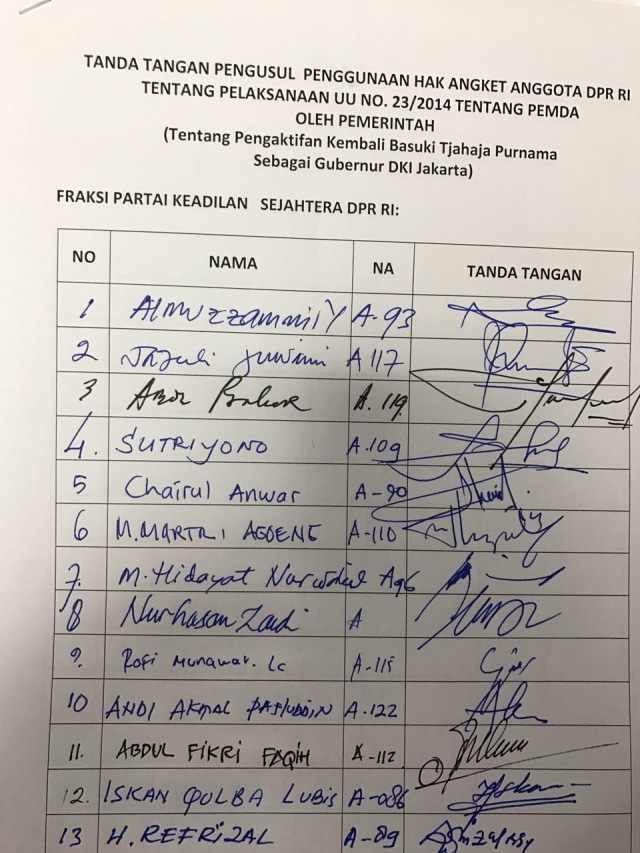 TANDA TANGAN PENGUSUL PENGGUNAAN HAK ANGKET ANGGOTA DPR RI
TENTANG PELAKSANAAN UU NO. 23/2014 TENTANG PEMDA
OLEH PEMERINTAH
(Tentang Pengaktifan Kembali Basuki Tjahaja Purnama
Sebagai Gubernur DKI Jakarta)
FRAKSI PARTAI KEADILAN SEJAHTERA DPR RI:
NO NAMA NA TANDA TANGAN
1 Almuzzammil Y A-93
2 Jazuli Juwaini A 117
3 A. 119
4. SUTRIYONO A.109
5 Chairul Anwar A-90
6 M. MARTRI AGOENG A-110
7. M. Hidayat A96
8 Nurhasan Zaidi A
9. Rofi Munawar. Lc A-115
10 ANDI AKMAL PASLUDDIN A.122
11. ABDUL FIKRI FAQIH A-112
12. ISKAN QOLBA LUBIS A-086
13 H. REFRIZAL A-89